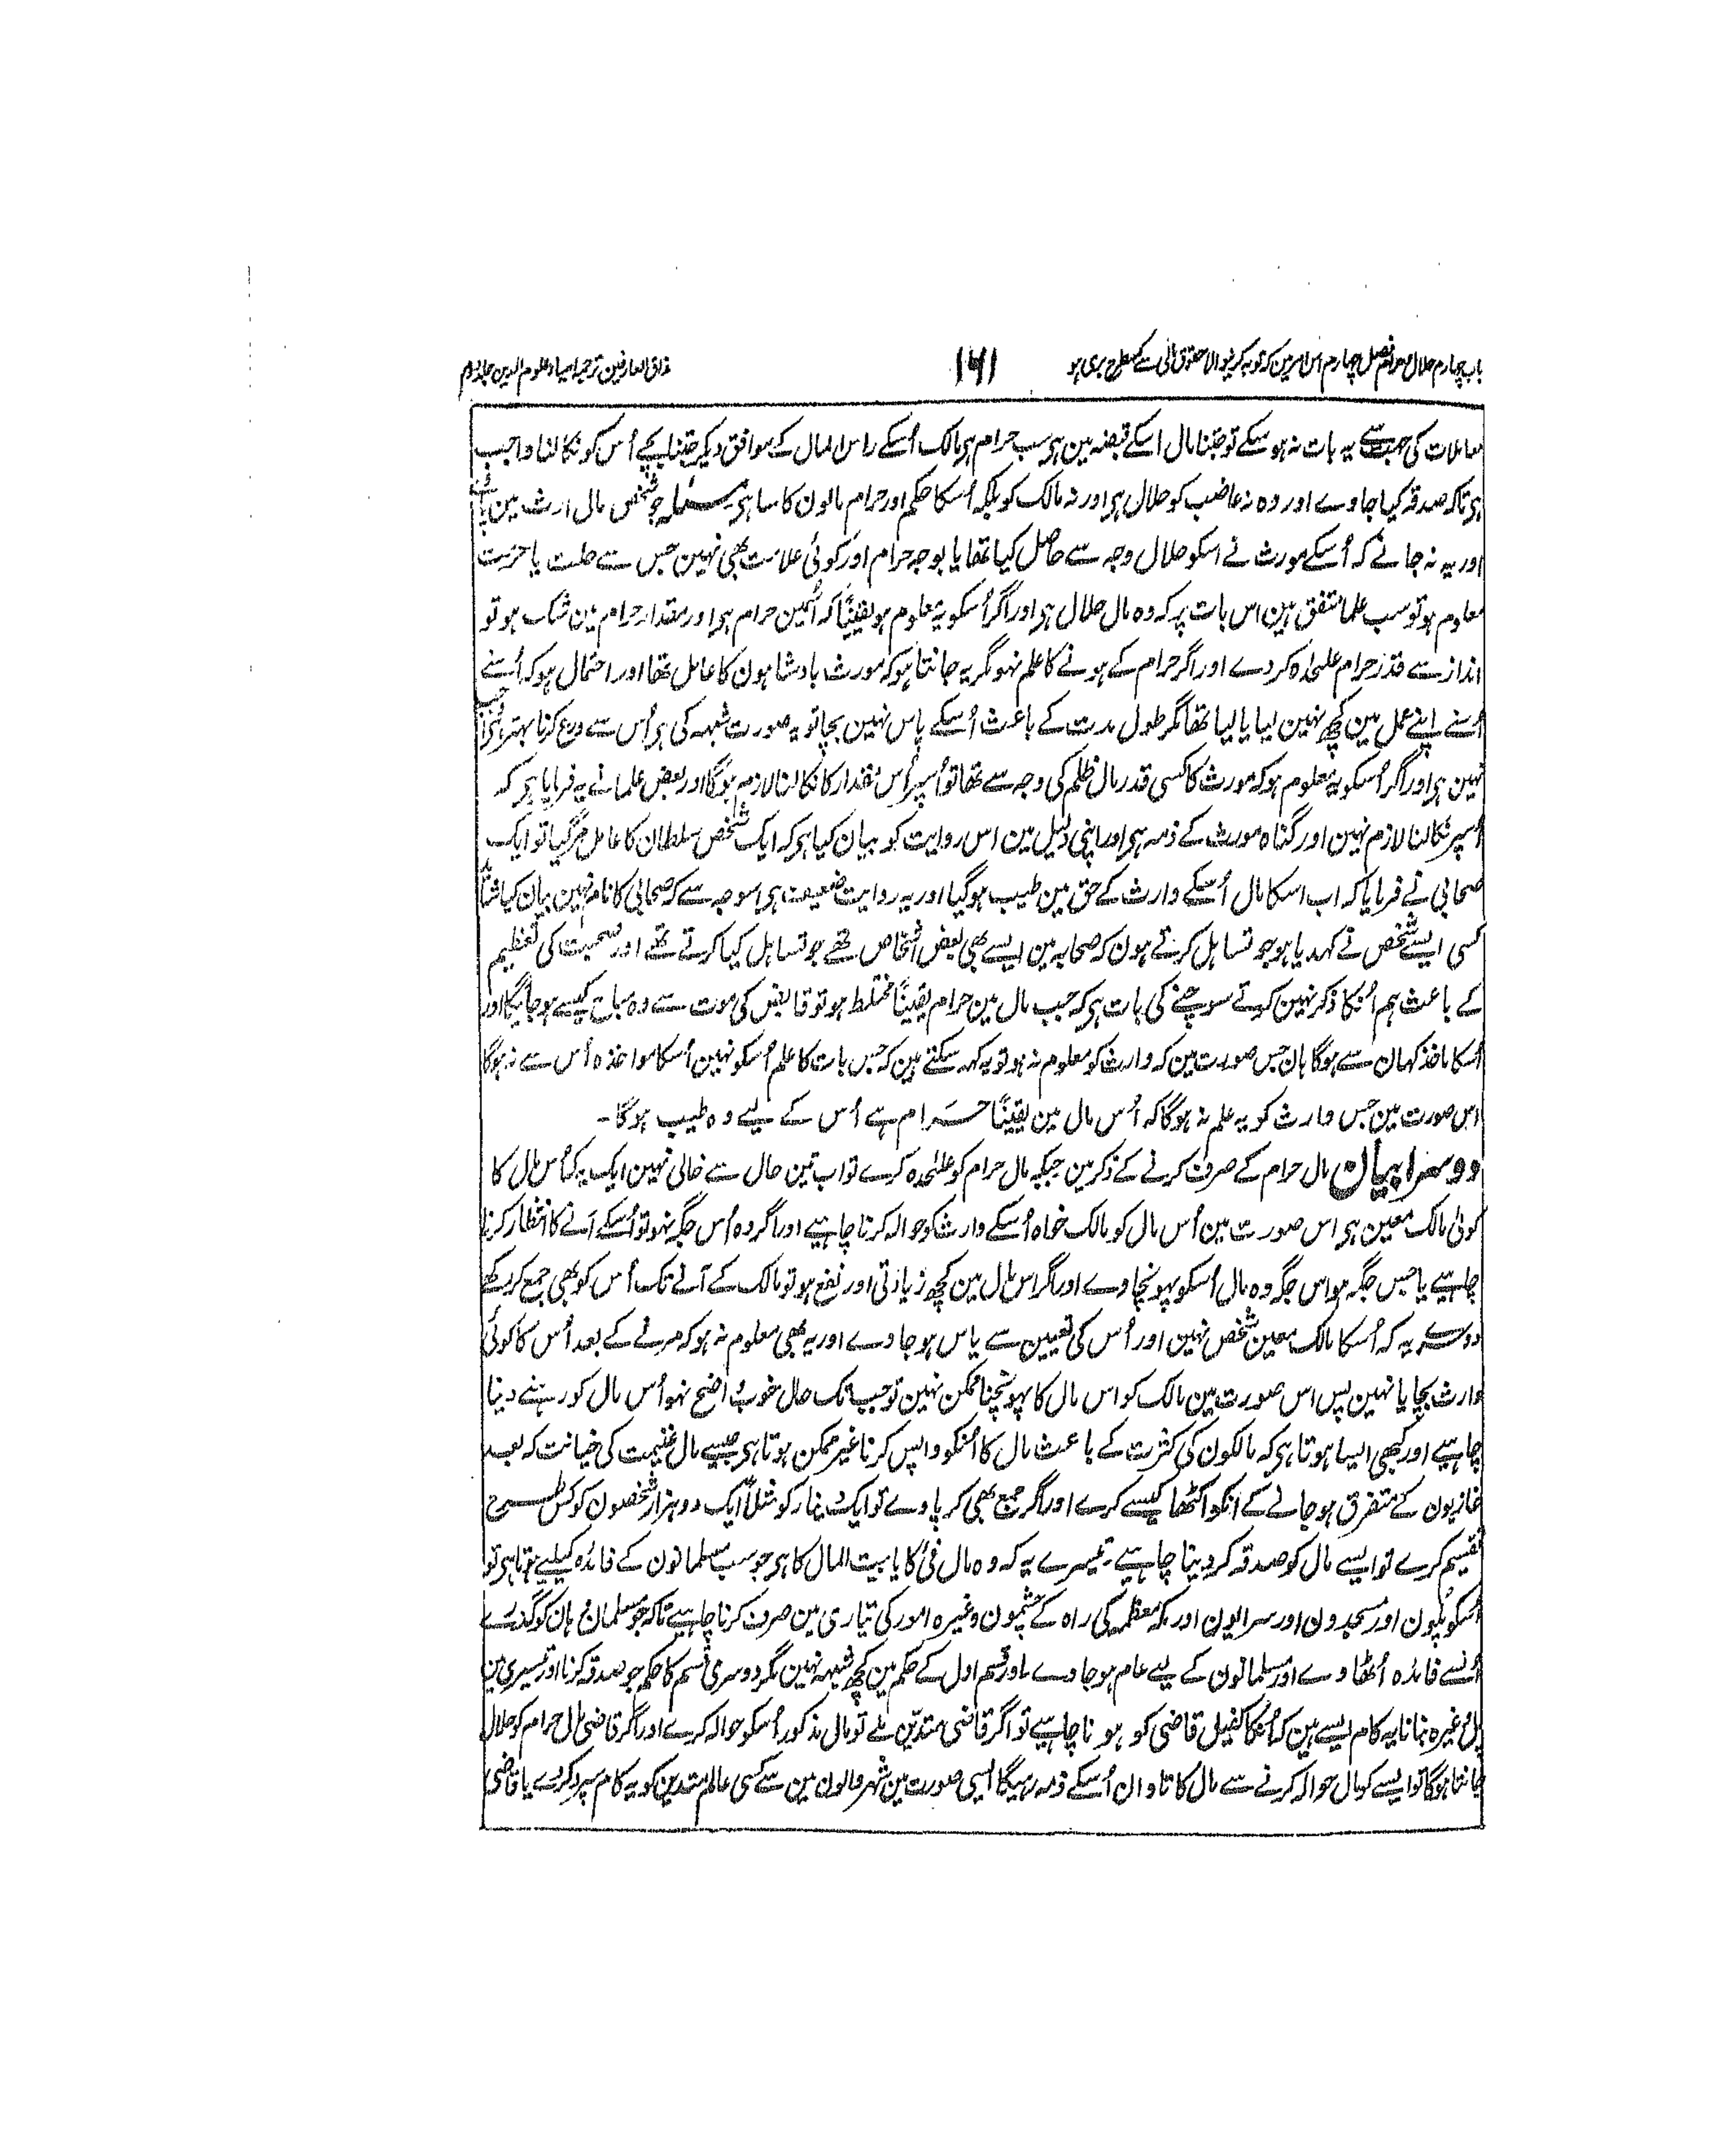 باب چہارم حلال حرام فصل چہارم اس امر مین کہ توبہ کرنیوالا حقوق مالی سے کسطرح بری ہو
۱۶۱
مذاق العارفین ترجمہ احیاء علوم الدین جلد دوم
معاملات کی جہت سے یہ بات نہ ہو سکے تو جتنا مال اسکے قبضہ مین ہی سب حرام ہی مالک اُسکے راس المال کے موافق دیکر جتنا بچے اُس کو نکالنا واجب
ہی تاکہ صدقہ کیا جاوے اور وہ نہ غاصب کو حلال ہی اور نہ مالک کو بلکہ اُسکا حکم اور حرام مالون کا سا ہی مسئلہ جو شخص مال ارث مین پائے
اور یہ نہ جانے کہ اُسکے مورث نے اسکو حلال وجہ سے حاصل کیا تھا یا بوجہ حرام اور کوئی علامت بھی نہین جس سے حلت یا حرمت
معلوم ہو تو سب علما متفق ہین اس بات پر کہ وہ مال حلال ہی اور اگر اُسکو یہ معلوم ہو یقیناً کہ اُسمین حرام ہی اور مقدار حرام مین شک ہو تو
انداز سے قدر حرام علیحدہ کر دے اور اگر حرام کے ہونے کا علم نہو مگر یہ جانتا ہو کہ مورث بادشاہون کا عامل تھا اور احتمال ہو کہ اُسنے
اُسنے اپنے عمل مین کچھ نہین لیا یا لیا تھا مگر طول مدت کے باعث اُسکے پاس نہین بچا تو یہ صورت شبہہ کی ہی اُس سے ورع کرنا بہتر ہی واجب
نہین ہی اور اگر اُسکو یہ معلوم ہو کہ مورث کا کسی قدر مال ظلم کی وجہ سے تھا تو اُسپر اُس مقدار کا نکالنا لازم ہوگا اور بعض علما نے یہ فرمایا ہی کہ
اُسپر نکالنا لازم نہین اور گناہ مورث کے ذمہ ہی اور اپنی دلیل مین اس روایت کو بیان کیا ہی کہ ایک شخص سلطان کا عامل مر گیا تو ایک
صحابی نے فرمایا کہ اب اسکا مال اُسکے وارث کے حق مین طیب ہو گیا اور یہ روایت ضعیف ہی اسوجہ سے کہ صحابی کا نام نہین بیان کیا شاید
کسی ایسے شخص نے کہدیا ہو جو تساہل کرتے ہون کہ صحابہ مین ایسے بھی بعض اشخاص تھے جو تساہل کیا کرتے تھے اور صحبت کی تعظیم
کے باعث ہم اُنکا ذکر نہین کرتے سوچنے کی بات ہی کہ جب مال مین حرام یقیناً مختلط ہو تو قابض کی موت سے وہ مباح کیسے ہو جائیگا اور
اُسکا ماخذ کہان سے ہوگا ہان جس صورت مین کہ وارث کو معلوم نہ ہو تو یہ کہہ سکتے ہین کہ جس بات کا علم اُسکو نہین اُسکا مواخذہ اُس سے نہ ہوگا
اس صورت مین جس وارث کو یہ علم نہ ہوگا کہ اُس مال مین یقیناً حرام ہے اُس کے لیے وہ طیب ہوگا ۔
دوسرا بیان مال حرام کے صرف کرنے کے ذکر مین جبکہ مال حرام کو علیحدہ کرے تو اب تین حال سے خالی نہین ایک یہ کہ اُس مال کا
کوئی مالک معین ہی اس صورت مین اُس مال کو مالک خواہ اُسکے وارث کو حوالہ کرنا چاہیے اور اگر وہ اُس جگہ نہو تو اُسکے آنے کا انتظار کرنا
چاہیے یا جس جگہ ہو اس جگہ وہ مال اُسکو پہونچاوے اور اگر اس مال مین کچھ زیادتی اور نفع ہو تو مالک کے آنے تک اُس کو بھی جمع کر رکھے
دوسرے یہ کہ اُسکا مالک معین شخص نہین اور اُس کی تعیین سے یاس ہو جاوے اور یہ بھی معلوم نہ ہو کہ مرنے کے بعد اُس کا کوئی
وارث بچا یا نہین پس اس صورت مین مالک کو اس مال کا پہونچنا ممکن نہین تو جب تک حال خوب واضح نہو اُس مال کو رہنے دینا
چاہیے اور کبھی ایسا ہوتا ہی کہ مالکون کی کثرت کے باعث مال کا اُنکو واپس کرنا غیر ممکن ہوتا ہی جیسے مال غنیمت کی خیانت کہ بعد
غازیون کے متفرق ہو جانے کے انکو اکٹھا کیسے کرے اور اگر جمع بھی کر پاوے تو ایک دینار کو مثلاً ایک دو ہزار شخصون کو کس طرح
تقسیم کرے تو ایسے مال کو صدقہ کر دینا چاہیے تیسرے یہ کہ وہ مال فئی کا یا بیت المال کا ہی جو سب مسلمانون کے فائدہ کیلیے ہوتا ہی تو
اُسکو پُلون اور مسجدون اور سرایون اور مکہ معظمہ کی راہ کے چشمون وغیرہ امور کی تیاری مین صرف کرنا چاہیے تاکہ جو مسلمان وہان کو گذرے
اُنسے فائدہ اُٹھاوے اور مسلمانون کے لیے عام ہو جاوے اور قسم اول کے حکم مین کچھ شبہہ نہین مگر دوسری قسم کا حکم جو صدقہ کرنا اور تیسری مین
پل وغیرہ بنانا یہ کام ایسے ہین کہ اُنکا کفیل قاضی کو ہونا چاہیے تو اگر قاضی متدین ملے تو مال مذکور اُسکو حوالہ کرے اور اگر قاضی مال حرام کو حلال
جانتا ہوگا تو ایسے کو مال حوالہ کرنے سے مال کا تاوان اُسکے ذمہ رہیگا ایسی صورت مین شہر والون مین سے کسی عالم متدین کو یہ کام سپرد کر دے یا قاضی